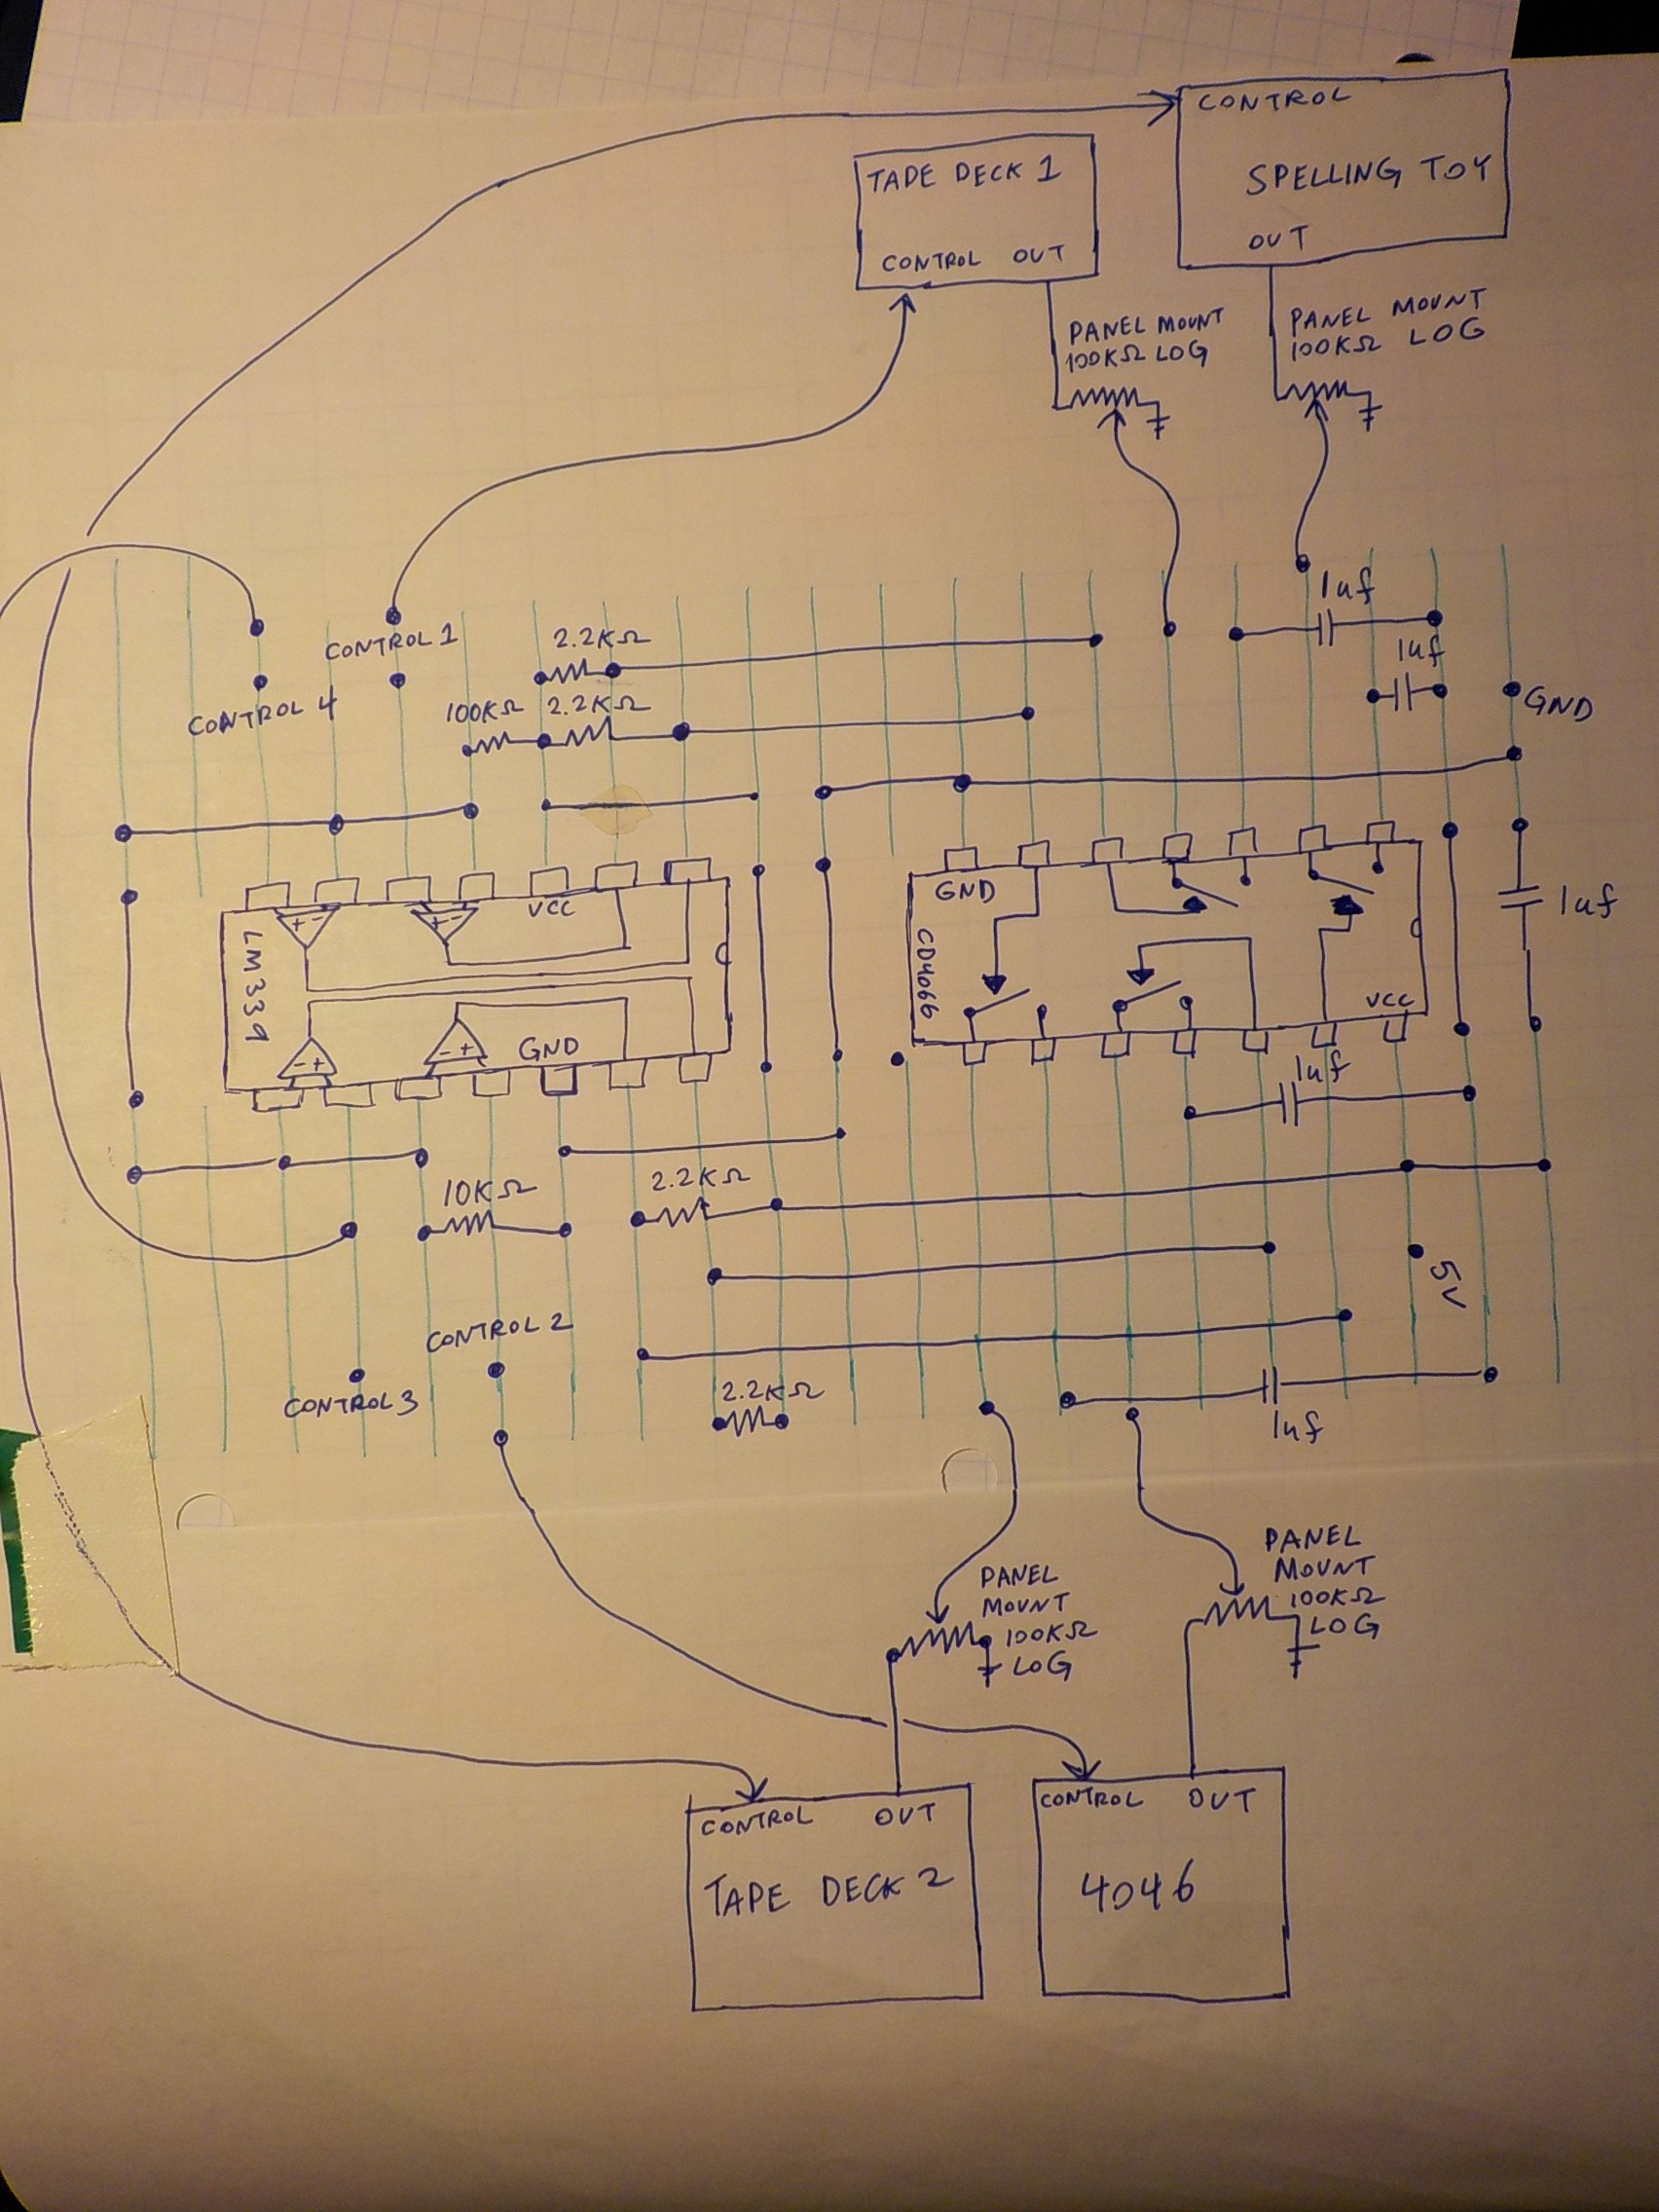 CONTROL
SPELLING TOY
OUT
TAPE DECK 1
CONTROL OUT
PANEL MOUNT
100KΩ LOG
PANEL MOUNT
100KΩ LOG
1uf
CONTROL 1
2.2KΩ
1uf
CONTROL 4
100KΩ 2.2KΩ
GND
VCC
GND
LM339
CD4066
1uf
GND
VCC
1uf
10KΩ
2.2KΩ
5V
CONTROL 2
CONTROL 3
2.2KΩ
1uf
PANEL
MOUNT
100KΩ
LOG
PANEL
MOUNT
100KΩ
LOG
CONTROL OUT
TAPE DECK 2
CONTROL OUT
4046